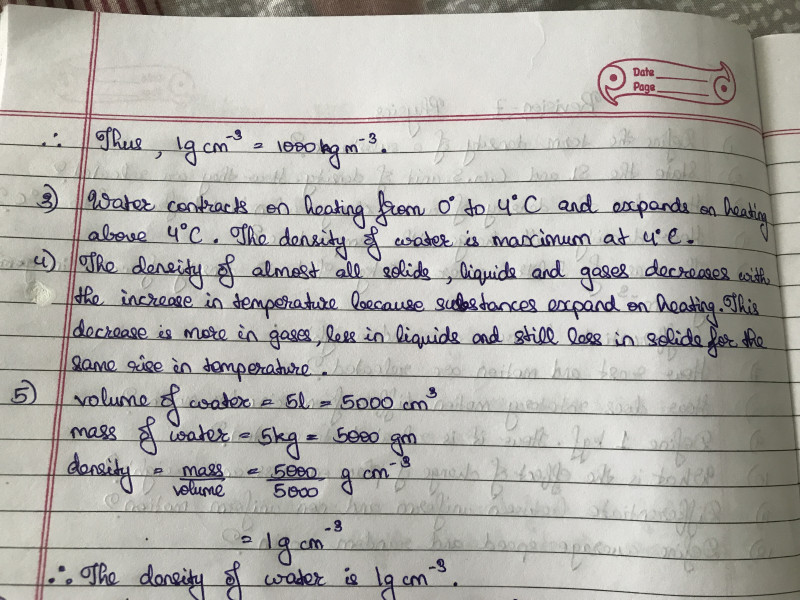 Date
Page
∴ Thus, 1g cm⁻³ = 1000 kg m⁻³.
3) Water contracts on heating from 0° to 4°C and expands on heating
above 4°C. The density of water is maximum at 4°C.
4) The density of almost all solids, liquids and gases decreases with
the increase in temperature because substances expand on heating. This
decrease is more in gases, less in liquids and still less in solids for the
same rise in temperature.
5) volume of water = 5l = 5000 cm³
mass of water = 5kg = 5000 gm
density = mass/volume = 5000/5000 g cm⁻³
= 1g cm⁻³
∴ The density of water is 1g cm⁻³.